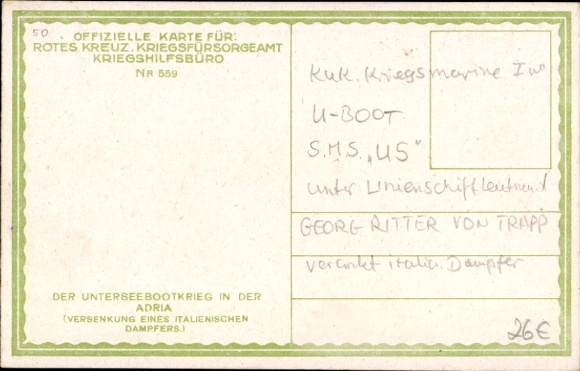 50
OFFIZIELLE KARTE FÜR:
ROTES KREUZ, KRIEGSFÜRSORGEAMT
KRIEGSHILFSBÜRO
NR 559
KuK. Kriegsmarine I W
U-BOOT
S.M.S. „U5"
unter Linienschiffleutnant
GEORG RITTER VON TRAPP
versenkt italie. Dampfer
DER UNTERSEEBOOTKRIEG IN DER
ADRIA
(VERSENKUNG EINES ITALIENISCHEN
DAMPFERS.)
26€